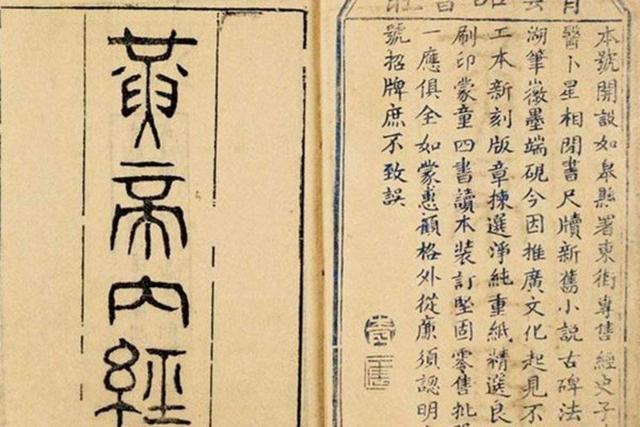 黄帝内經
本號開設如皋縣署東街專售經史子
醫卜星相閒書尺牘新舊小説古碑法
湖筆徽墨端硯今因推廣文化起見不
工本新刻版章揀選淨純重紙精選良
刷印蒙童四書讀本裝訂堅固零售批
一應俱全如蒙惠顧格外從廉須認明
號招牌庶不致誤